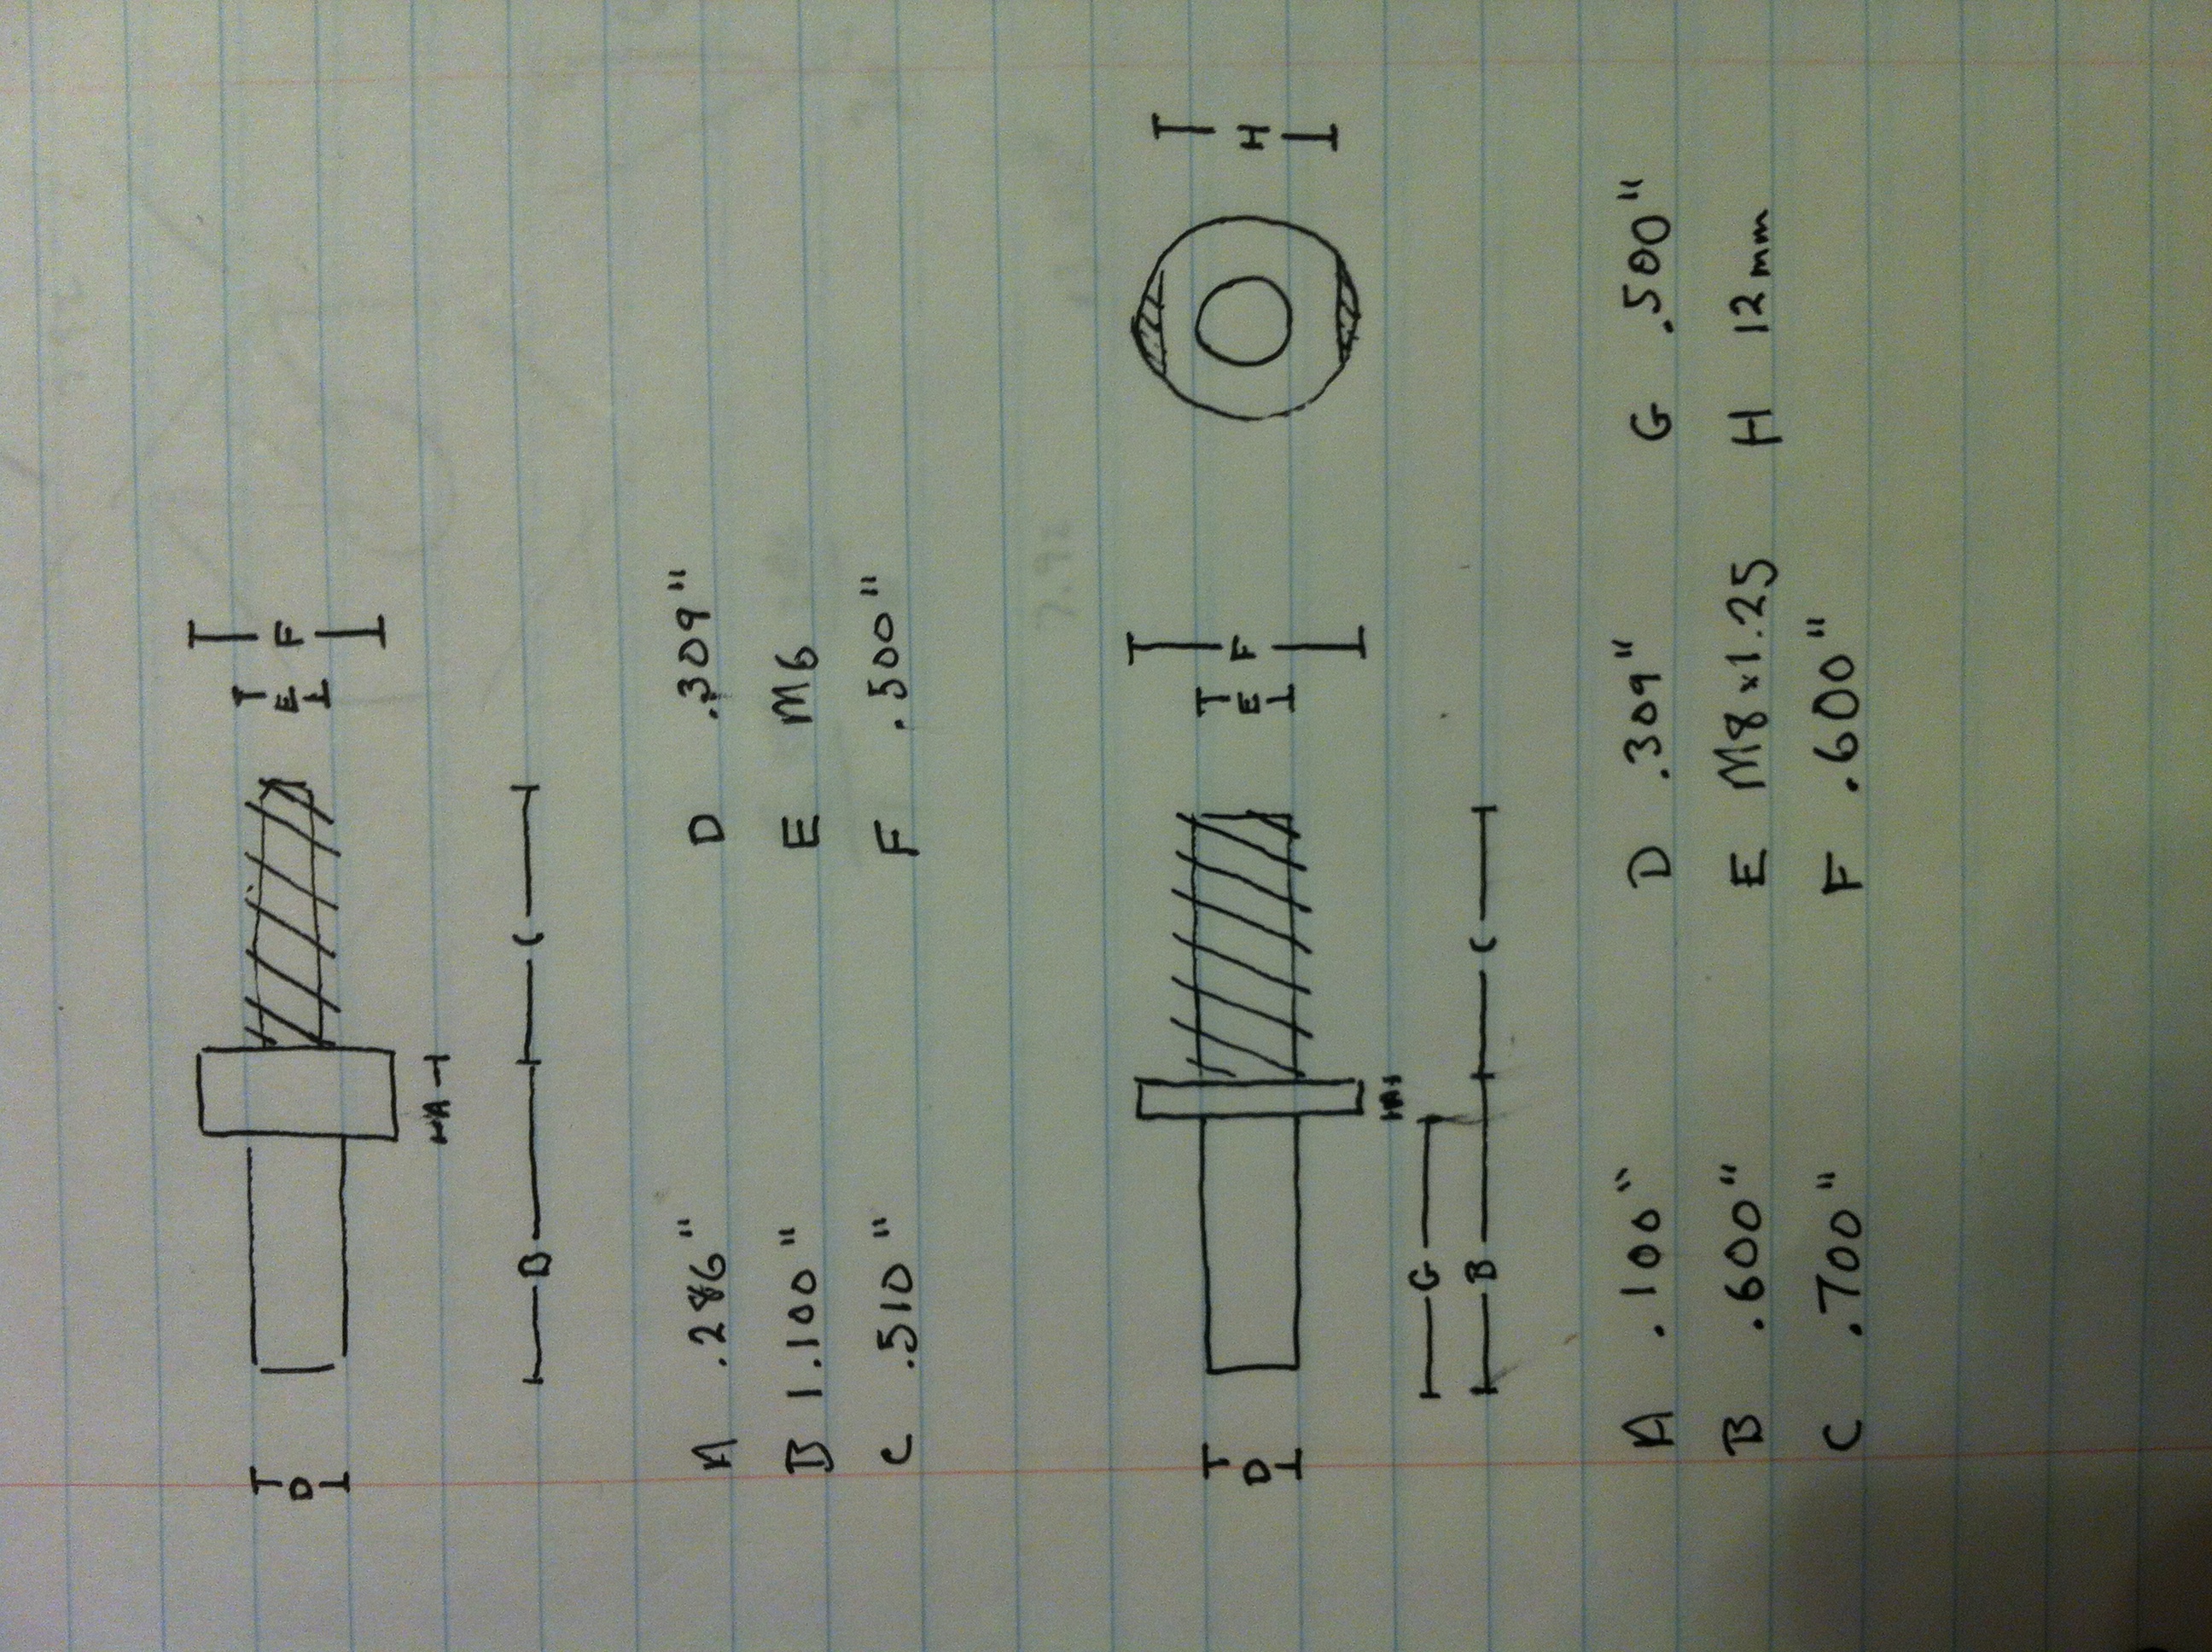 F
E
D
A
B C
A .286" D .309"
B 1.100" E M6
C .510" F .500"
F
E
H
D
A
G
B C
A .100" D .309" G .500"
B .600" E M8x1.25 H 12mm
C .700" F .600"